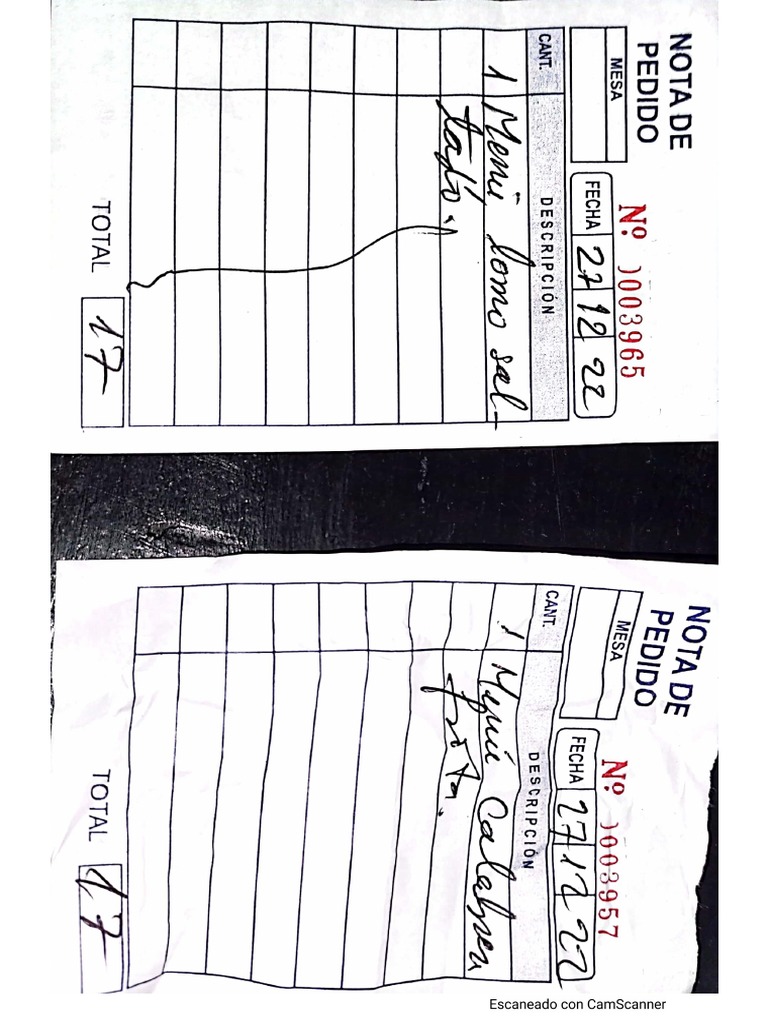 NOTA DE
PEDIDO
Nº 0003965
MESA
FECHA 27 12 22
CANT. DESCRIPCIÓN
1 Menú lomo sal-
tado.
TOTAL 17
NOTA DE
PEDIDO
Nº 0003957
MESA
FECHA 27 12 22
CANT. DESCRIPCIÓN
1 Menú Calabrea
frita.
TOTAL 17
Escaneado con CamScanner